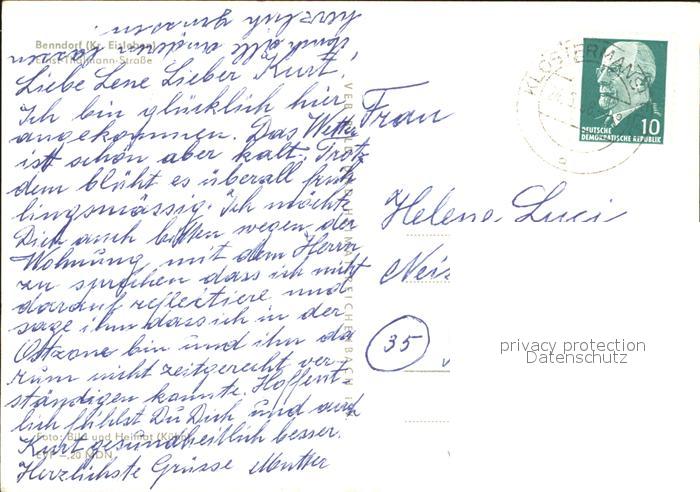 Benndorf (Kr. Eisleben)
Ernst-Thälmann-Straße
Liebe Lene Lieber Kurt!
Ich bin glücklich hier
angekommen. Das Wetter
ist schön aber kalt. Trotz
dem blüht es überall früh
lingsmässig. Ich möchte
Dich auch bitten wegen der
Wohnung mit dem Herrn
zu sprechen dass ich nicht
darauf reflectiere und
sage ihm dass ich in der
Ostzone bin und ihn da
rum nicht zeitgerecht ver
ständigen konnte. Hoffent
lich fühlst Du Dich und auch
Kurt gesundheitlich besser.
Herzlichste Grüsse Mutter
herzlich grüssen.
Foto: Bild und Heimat
EVP –,20 MDN
VERLAG REICHENBACH
Frau
Helene Luci
Neis
35
KLOSTERMANSF
10
DEUTSCHE
DEMOKRATISCHE REPUBLIK
privacy protection
Datenschutz